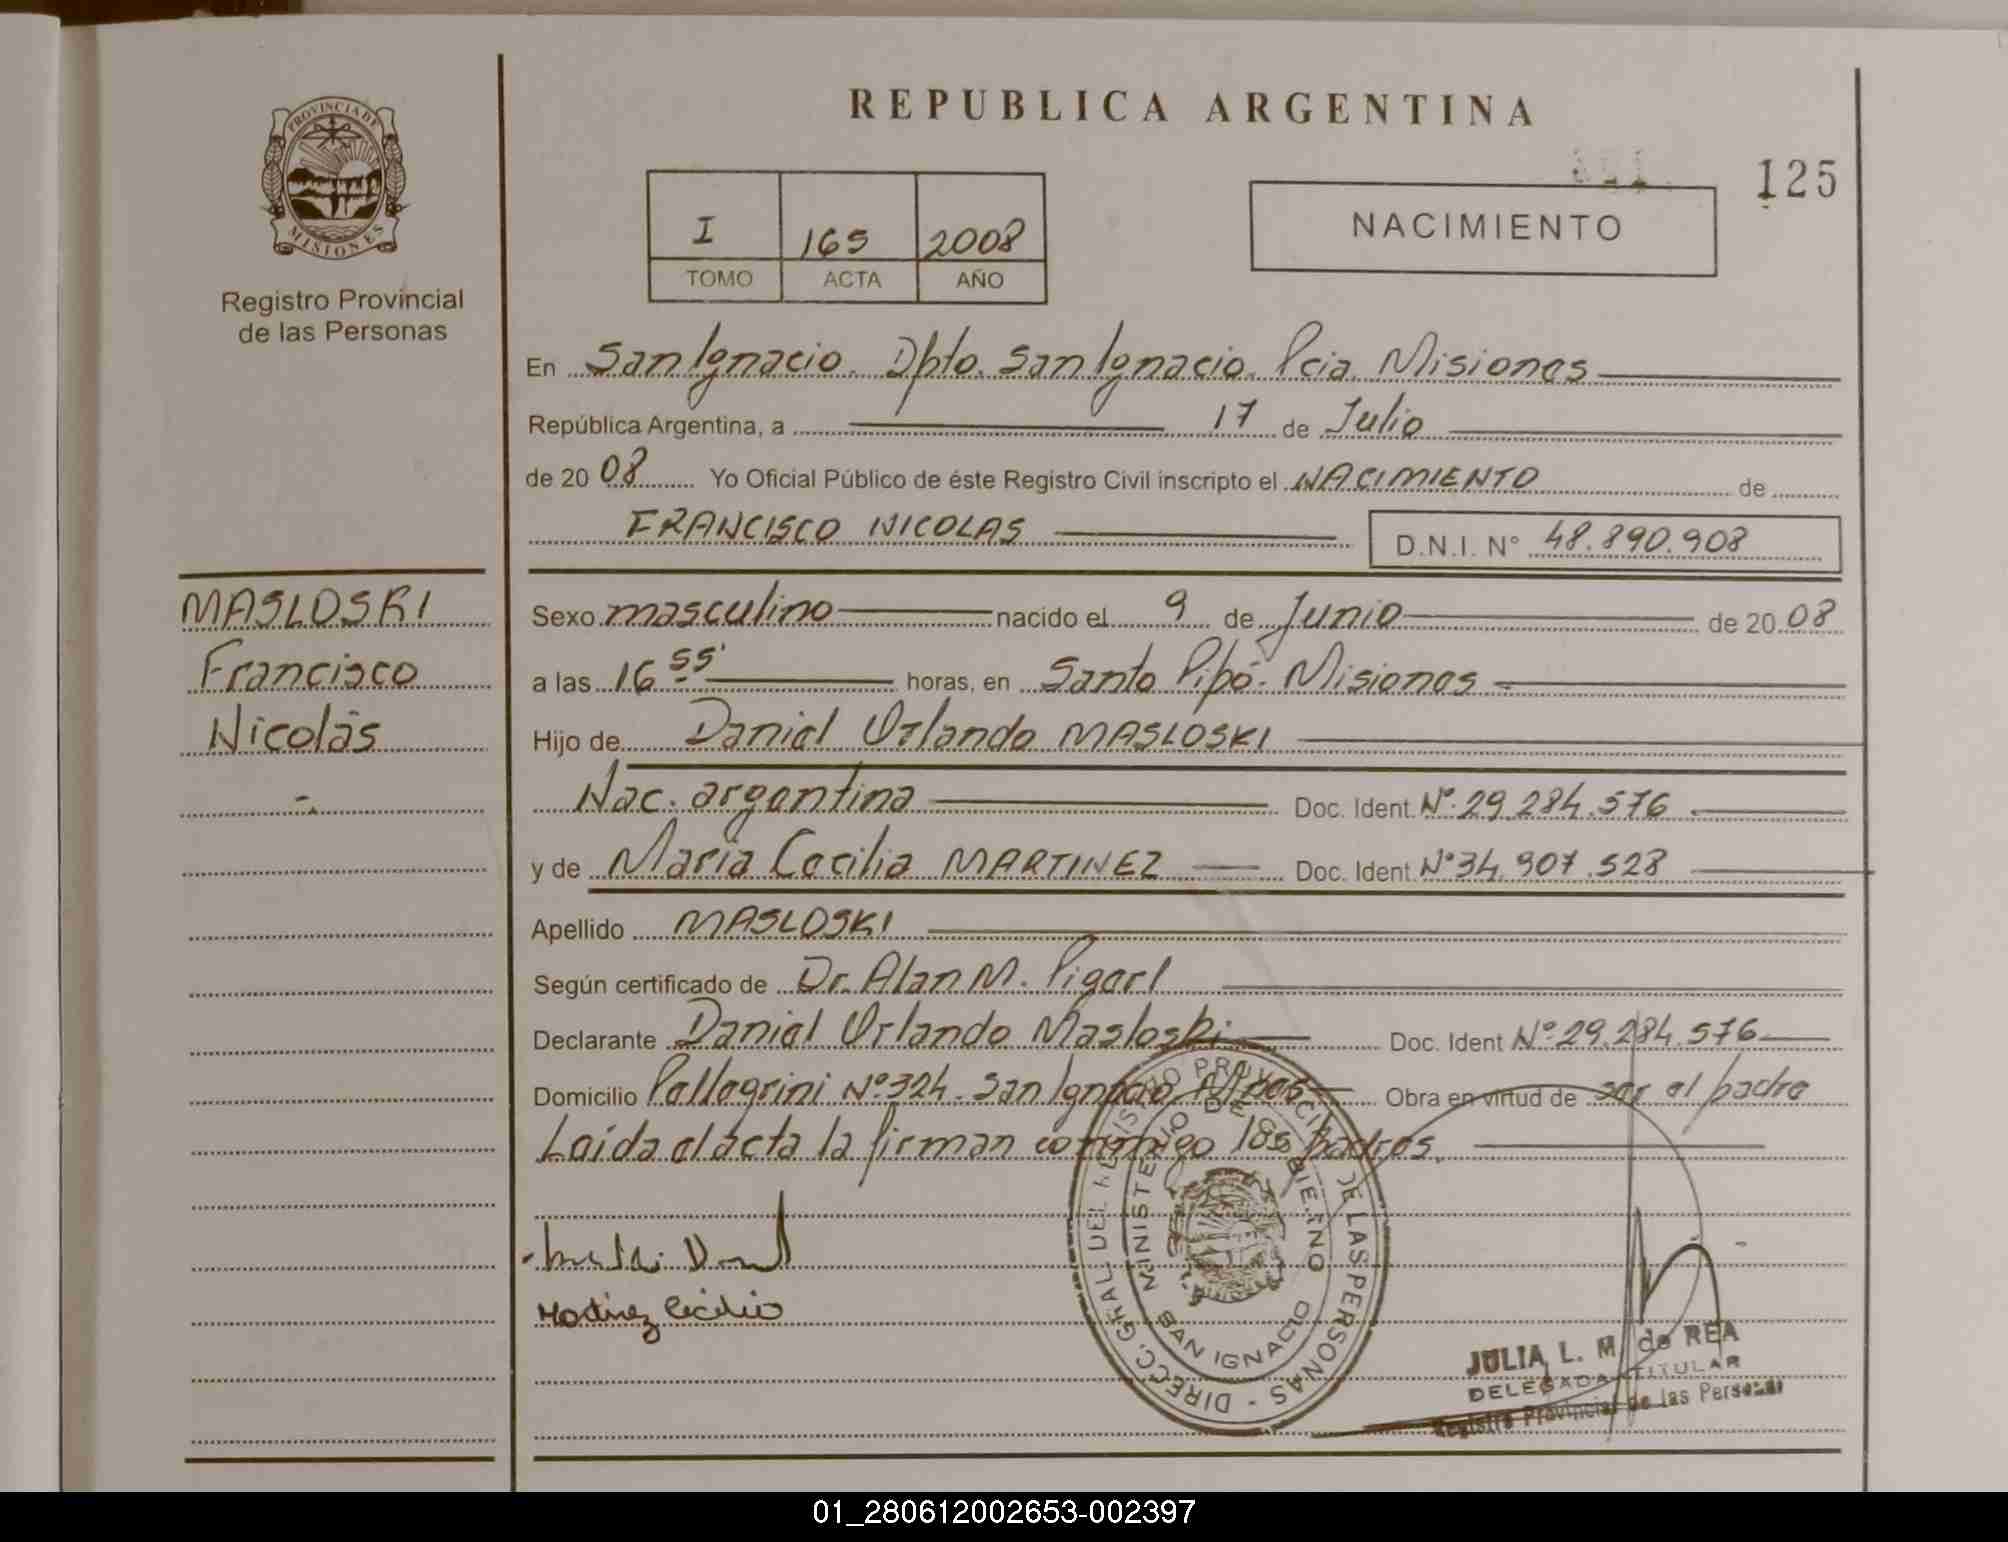 REPUBLICA ARGENTINA
125
PROVINCIA DE MISIONES
Registro Provincial
de las Personas
I 165 2008
TOMO ACTA AÑO
NACIMIENTO
En San Ignacio. Dpto. San Ignacio. Pcia. Misiones
República Argentina, a 17 de Julio
de 2008 Yo Oficial Público de éste Registro Civil inscripto el NACIMIENTO de
FRANCISCO NICOLAS D.N.I. N° 48.890.908
MASLOSKI
Francisco
Nicolás
Sexo masculino nacido el 9 de Junio de 2008
a las 16 55' horas, en Santo Pipó. Misiones
Hijo de Daniel Orlando MASLOSKI
Nac. argentina Doc. Ident. N° 29.284.576
y de María Cecilia MARTINEZ Doc. Ident. N° 34.907.528
Apellido MASLOSKI
Según certificado de Dr. Alan M.
Declarante Daniel Orlando Masloski Doc. Ident N° 29.284.576
Domicilio Pellegrini N° 324. San Ignacio Mnes Obra en virtud de ser el padre
Leída el acta la firman conmigo los padres.
Martinez Cecilia
DIRECC. GRAL DEL REGISTRO PROVINCIAL DE LAS PERSONAS -
MINISTERIO DE GOBIERNO
SAN IGNACIO
JULIA L. M. de REA
DELEGADA TITULAR
Registro Provincial de las Personas
01_280612002653-002397